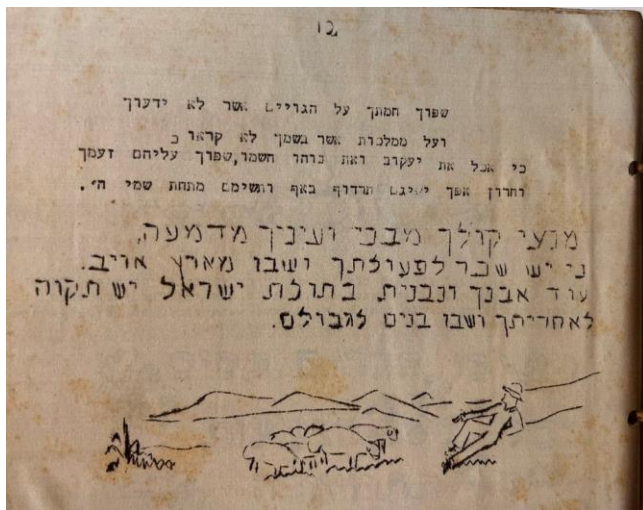 שפוך חמתך על הגויים אשר לא ידעוך
ועל ממלכות אשר בשמך לא קראו כ
כי אכל את יעקוב ואת נוהו השמו,שפוך עליהם זעמך
וחרון אפך ישיגם תרדוף באף ותשימם מתחת שמי ה'.
מנעי קולך מבכי ועיניך מדמעה,
כי יש שכר לפעולתך ושבו מארץ אויב.
עוד אבנך ונבנית בתולת ישראל יש תקוה
לאחריתך ושבו בנים לגבולם.